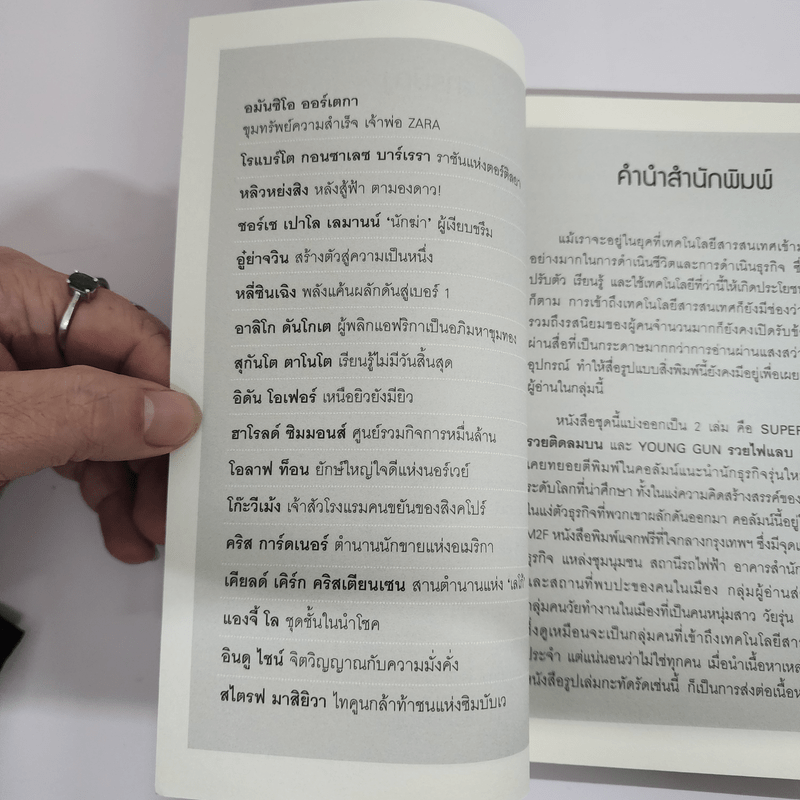 อมันซิโอ ออร์เตกา
ขุมทรัพย์ความสำเร็จ เจ้าพ่อ ZARA
โรแบร์โต กอนซาเลซ บาร์เรรา ราชันแห่งตอร์ติลยา
หลิวหย่งสิง หลังสู้ฟ้า ตามองดาว!
ซอร์เซ เปาโล เลมานน์ ‘นักฆ่า’ ผู้เงียบขรึม
อู๋ย่าจวิน สร้างตัวสู่ความเป็นหนึ่ง
หลี่ซินเฉิง พลังแค้นผลักดันสู่เบอร์ 1
อาลิโก ดันโกเต ผู้พลิกแอฟริกาเป็นอภิมหาขุมทอง
สุกันโต ตาโนโต เรียนรู้ไม่มีวันสิ้นสุด
อิดัน โอเฟอร์ เหนือยิวยังมียิว
ฮาโรลด์ ซิมมอนส์ ศูนย์รวมกิจการหมื่นล้าน
โอลาฟ ท็อน ยักษ์ใหญ่ใจดีแห่งนอร์เวย์
โก๊ะวีเม้ง เจ้าสัวโรงแรมคนขยันของสิงคโปร์
คริส การ์ดเนอร์ ตำนานนักขายแห่งอเมริกา
เคียลด์ เคิร์ก คริสเตียนเซน สานตำนานแห่ง
แองจี้ โล ชุดชั้นในนำโชค
อินดู ไชน์ จิตวิญญาณกับความมั่งคั่ง
สไตรฟ มาสิยิวา ไทคูนกล้าท้าชนแห่งซิมบับเว
คำนำสำนักพิมพ์
แม้เราจะอยู่ในยุคที่เทคโนโลยีสารสนเทศเข้าม
อย่างมากในการดำเนินชีวิตและการดำเนินธุรกิจ
ปรับตัว เรียนรู้ และใช้เทคโนโลยีที่ว่านี้ให้เกิดประโยช
ก็ตาม การเข้าถึงเทคโนโลยีสารสนเทศก็ยังมีช่องว่า
รวมถึงรสนิยมของผู้คนจำนวนมากก็ยังคงเปิดรับข้
ผ่านสื่อที่เป็นกระดาษมากกว่าการอ่านผ่านแสงสว่า
อุปกรณ์ ทำให้สื่อรูปแบบสิ่งพิมพ์นี้ยังคงมีอยู่เพื่อเผย
ผู้อ่านในกลุ่มนี้
หนังสือชุดนี้แบ่งออกเป็น 2 เล่ม คือ SUPER
รวยติดลมบน และ YOUNG GUN รวยไฟแลบ
เคยทยอยตีพิมพ์ในคอลัมน์แนะนำนักธุรกิจรุ่นให
ระดับโลกที่น่าศึกษา ทั้งในแง่ความคิดสร้างสรรค์ของ
ในแง่ตัวธุรกิจที่พวกเขาผลักดันออกมา คอลัมน์นี้อยู่ใ
M2F หนังสือพิมพ์แจกฟรีที่ใจกลางกรุงเทพฯ ซึ่งมีจุดแ
ธุรกิจ แหล่งชุมนุมชน สถานีรถไฟฟ้า อาคารสำนัก
และสถานที่พบปะของคนในเมือง กลุ่มผู้อ่านส่
กลุ่มคนวัยทำงานในเมืองที่เป็นคนหนุ่มสาว วัยรุ่น
ซึ่งดูเหมือนจะเป็นกลุ่มคนที่เข้าถึงเทคโนโลยีสาร
ประจำ แต่แน่นอนว่าไม่ใช่ทุกคน เมื่อนำเนื้อหาเหล
หนังสือรูปเล่มกะทัดรัดเช่นนี้ ก็เป็นการส่งต่อเนื้อห